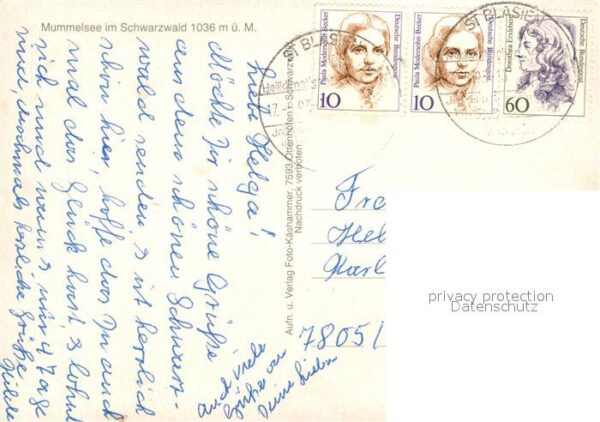 Mummelsee im Schwarzwald 1036 m ü. M.
Liebe Helga!
Möchte Dir schöne Grüße
aus dem schönen Schwarz-
wald senden, es ist herrlich
schön hier, hoffe das Du auch
mal das Glück hast, es lohnt
sich auch wenn's nur 4 Tage
nochmals herzliche Grüße
Hilde
auch viele
Grüße an
Deine Lieben
Aufn. u. Verlag Foto-Käshammer, 7593 Ottenhöfen i. Schwarzw.
Nachdruck verboten
ST BLASIEN
Paula Modersohn-Becker
Deutsche Bundespost
10
Paula Modersohn-Becker
Deutsche Bundespost
10
ST BLASIEN
Dorothea Erxleben
Deutsche Bundespost
60
Fra
Hel
Karl
7805/
privacy protection
Datenschutz